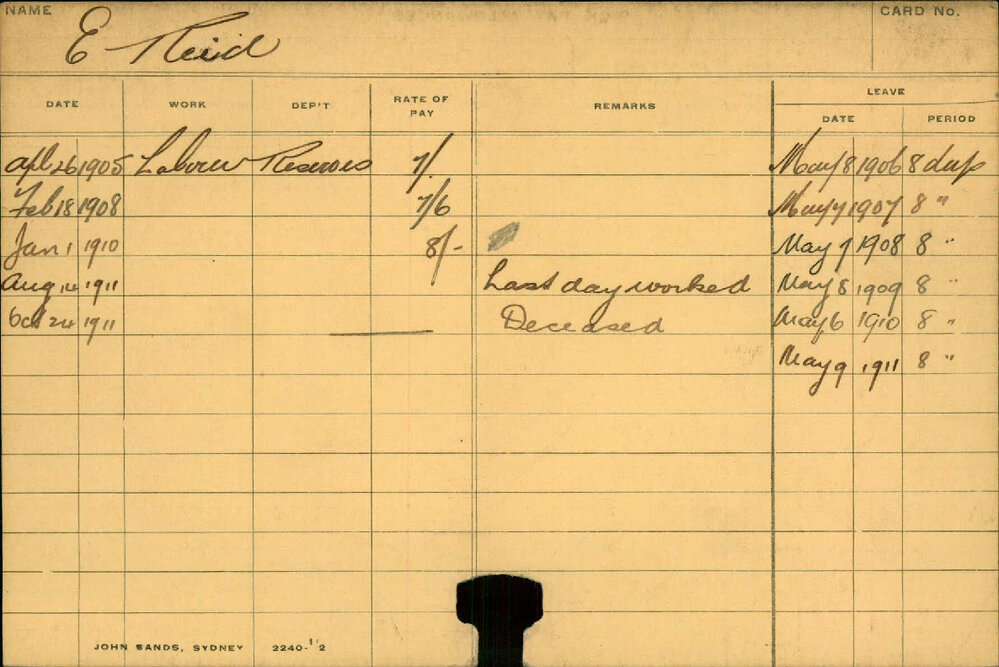 NAME
CARD No.
E Reid
DATE WORK DEP'T RATE OF PAY REMARKS LEAVE
DATE PERIOD
Apl 26 1905 Labourer Reserves 7/. May 8 1906 8 days
Feb 18 1908 7/6 May 7 1907 8 "
Jan 1 1910 8/- May 7 1908 8 "
Aug 14 1911 Last day worked May 8 1909 8 "
Oct 24 1911 Deceased May 6 1910 8 "
May 9 1911 8 "
JOHN SANDS, SYDNEY 2240-1/2